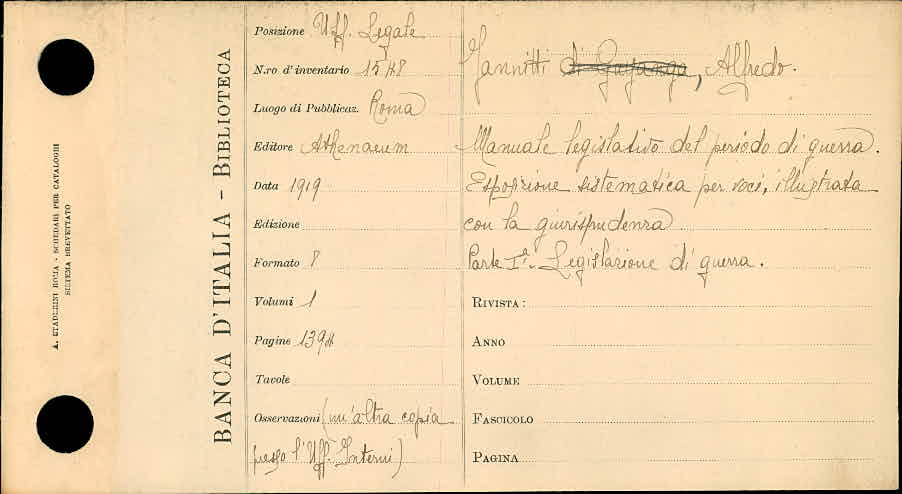 A. STADERINI ROMA - SCHEDARI PER CATALOGHI
SISTEMA BREVETTATO
BANCA D'ITALIA - BIBLIOTECA
Posizione Uff. Legale
N.ro d'inventario 1548
Luogo di Pubblicaz. Roma
Editore Athenaeum
Data 1919
Edizione
Formato 8
Volumi 1
Pagine
Tavole
Osservazioni (un'altra copia
presso l'Uff. Interni)
Iannitti di , Alfredo.
Manuale legislativo del periodo di guerra.
Esposizione sistematica per voci, illustrata
con la giurisprudenza
Parte Iª. Legislazione di guerra.
RIVISTA:
ANNO
VOLUME
FASCICOLO
PAGINA